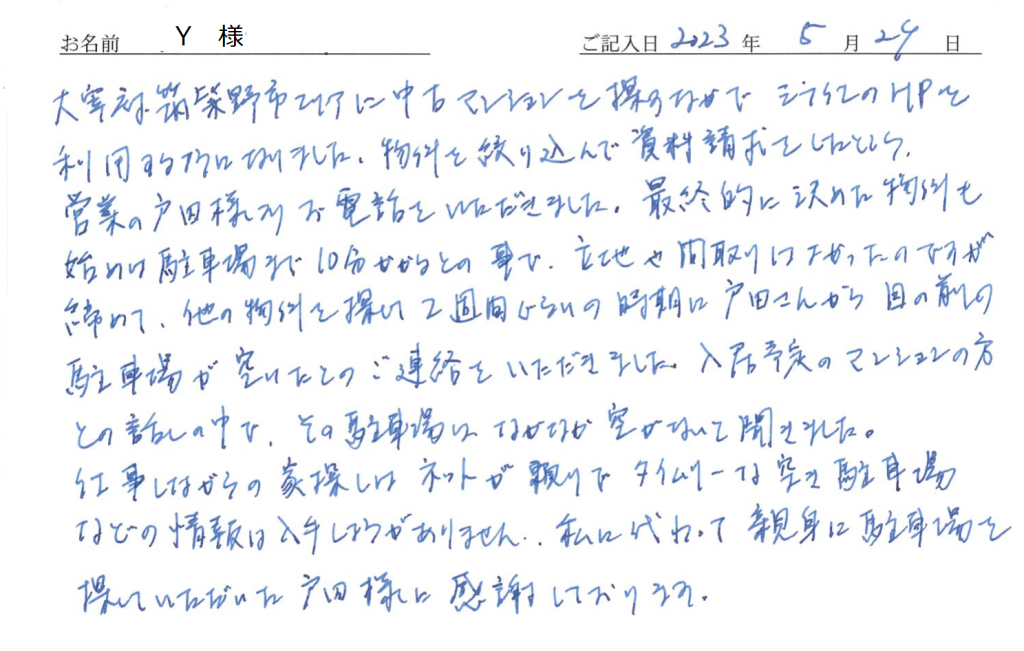 お名前 Y 様 ご記入日 2023 年 5 月 29 日
大宰府、筑紫野市エリアに中古マンションを探すなかで ミライエのHPを
利用する様になりました。物件を絞り込んで資料請求をしたところ、
営業の戸田様よりお電話をいただきました。最終的に決めた物件も
始めは駐車場まで10分かかるとの事で、立地や間取りはよかったのですが
締めて、他の物件を探して2週間ぐらいの時期に戸田さんから目の前の
駐車場が空いたとのご連絡をいただきました。入居予定のマンションの方
との話しの中で、その駐車場は、なかなか空かないと聞きました。
仕事しながらの家探しはネットが頼りでタイムリーな空き駐車場
などの情報は入手しようがありません。私に代わって親身に駐車場を
探していただいた戸田様に感謝しております。